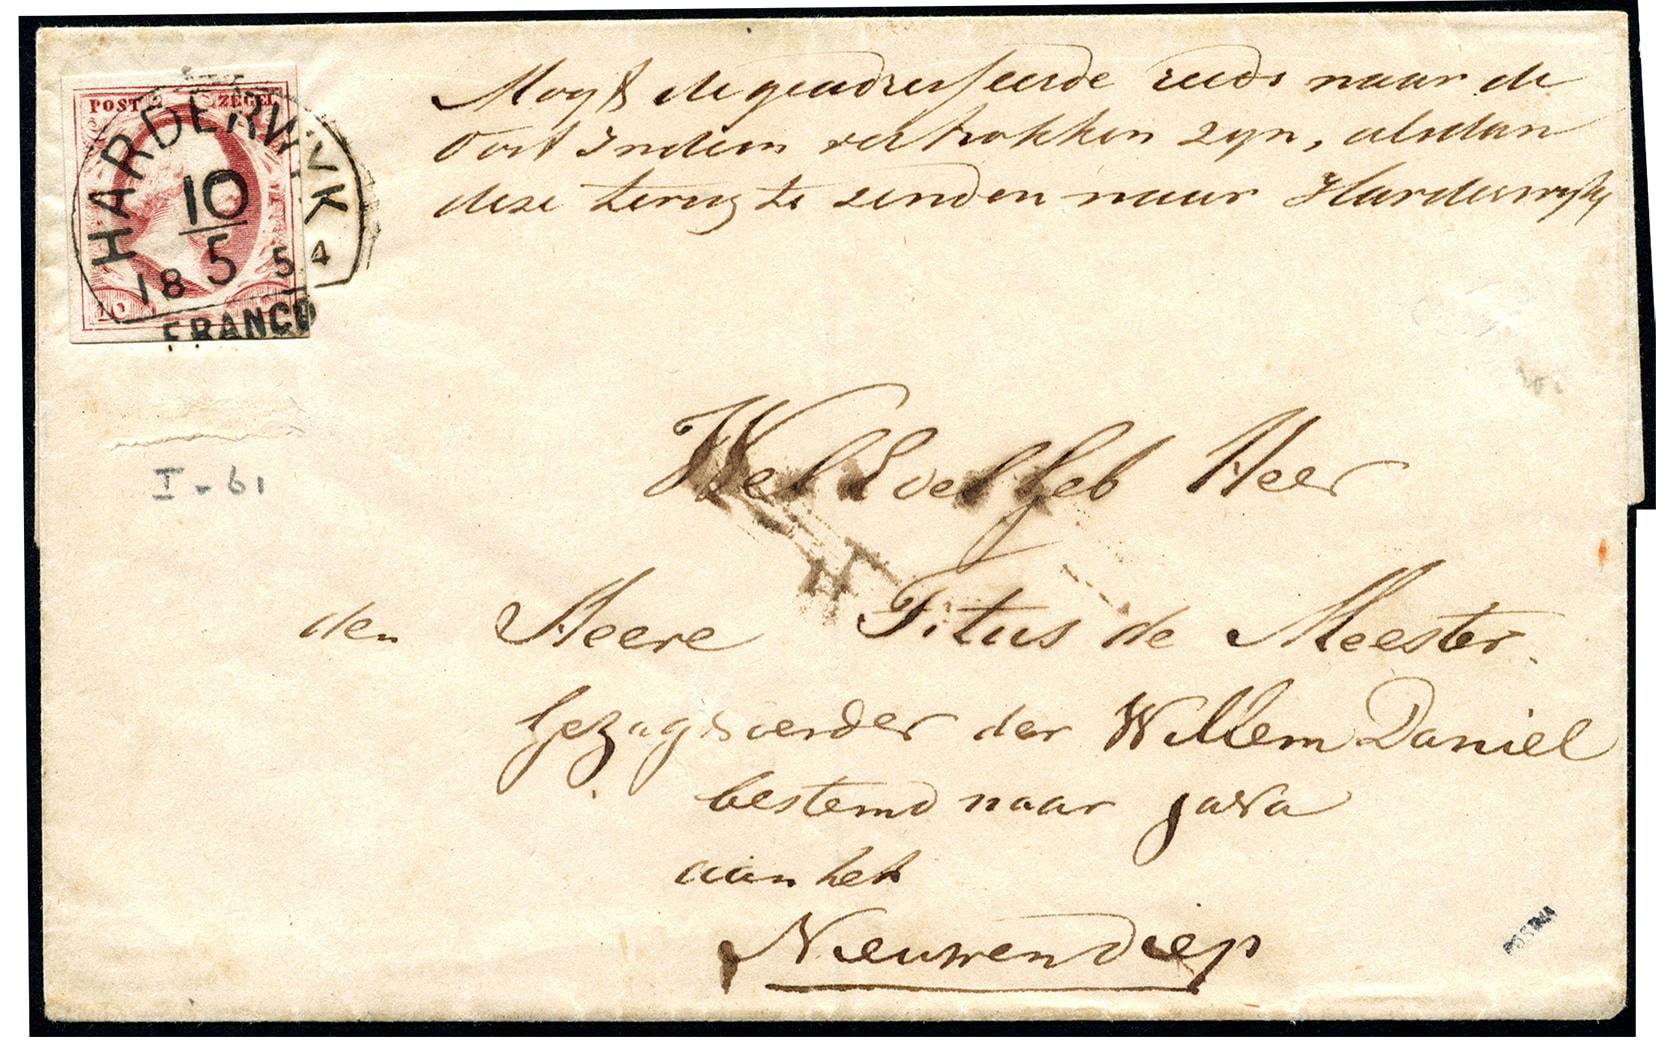 POST ZEGEL
HARDERWYK
10
5
1854
FRANCO
Mogt de geadresseerde reeds naar de
Oost Indien vertrokken zyn, alsdan
deze terug te zenden naar Harderwyk
I-61
Wel Edel Geb Heer
den Heere Titus de Meester
Gezagvoerder der Willem Daniel
bestemd naar Java
aan het
Nieuwendiep